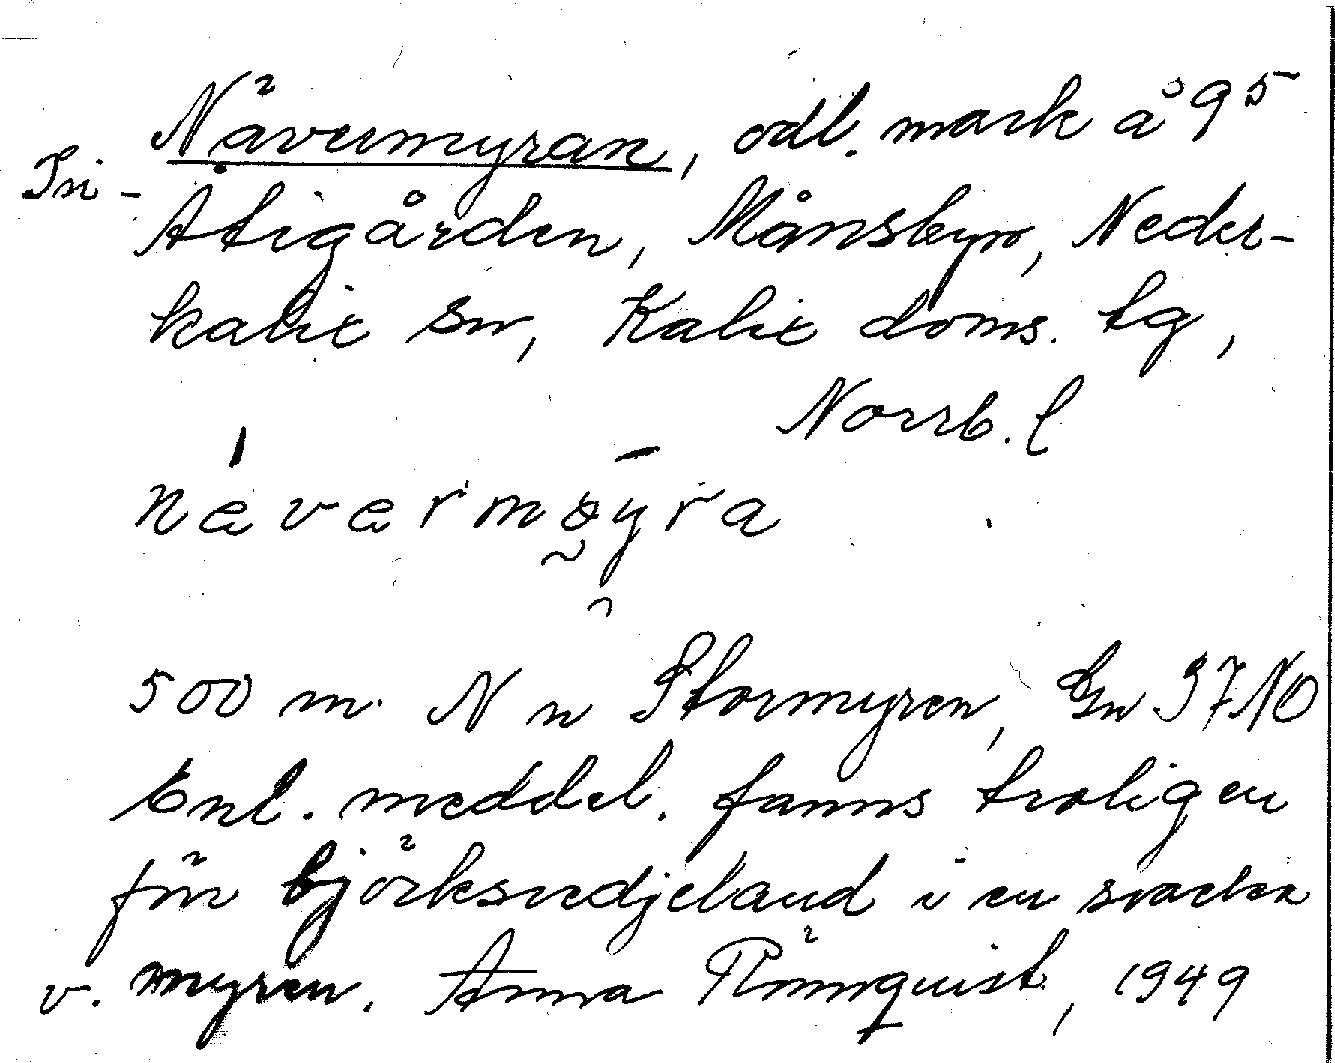 Nävermyran, odl. mark å 9⁵
Åtigården, Månsbyn, Neder-
kalix sn, Kalix doms. tg,
Norrb. l
500 m. N n Stormyren, Gn 37 NO
Enl. meddel. fanns troligen
för björksvedjeland i en svacka
v. myren. Anna Rönnquist, 1949